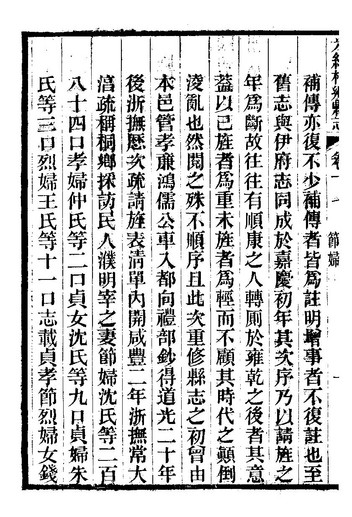 補傳亦復不少補傳者皆爲註明增事者不復註也至
舊志與伊府志同成於嘉慶初年其次序乃以請旌之
年爲斷故往往有順康之人轉厠於雍乾之後者其意
蓋以已旌者爲重未旌者爲輕而不顧其時代之顚倒
淩亂也然閱之殊不順序且此次重修縣志之初曾由
本邑管孝亷鴻儒公車入都向禮部鈔得道光二十年
後浙撫歷次疏請旌表淸單內開咸豐二年浙撫常大
湻疏稱桐鄉採訪民人濮明宰之妻節婦沈氏等二百
八十四口孝婦仲氏等二口貞女沈氏等九口貞婦朱
氏等三口烈婦王氏等十一口志載貞孝節烈婦女錢
節婦